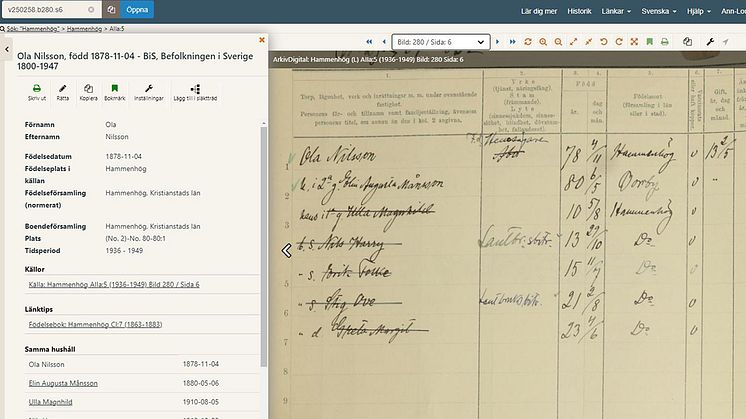 v250258.b280.s6
Öppna
Lär dig mer
Historik
Länkar
Svenska
Hjälp
Ann-Lo
Sök: "Hammenhög" > Hammenhög > Alla:5
Bild: 280 / Sida: 6
ArkivDigital: Hammenhög (L) Alla:5 (1936-1949) Bild: 280 Sida: 6
Ola Nilsson, född 1878-11-04 - BiS, Befolkningen i Sverige
1800-1947
Skriv ut
Rätta
Kopiera
Bokmärk
Inställningar
Lägg till i släktträd
Förnamn Ola
Efternamn Nilsson
Födelsedatum 1878-11-04
Födelseplats i Hammenhög
källan
Födelseförsamling Hammenhög, Kristianstads län
(normerat)
Boendeförsamling Hammenhög, Kristianstads län
Plats (No. 2)-No. 80-80:1
Tidsperiod 1936 - 1949
Källor
Källa: Hammenhög Alla:5 (1936-1949) Bild 280 / Sida 6
Länktips
Födelsebok: Hammenhög CI:7 (1863-1883)
Samma hushåll
Ola Nilsson 1878-11-04
Elin Augusta Månsson 1880-05-06
Ulla Magnhild 1910-08-05
1.
2.
3.
4.
5.
6.
7.
8.
Torp, lägenhet, verk och inrättningar m. m. under ovanstående
fastighet.
Personens för- och tillnamn samt familjeställning, ävensom
personens titel, om annan än den i kol. 2 angivna.
Yrke
(tjänst, näringsfång).
Stam
(främmande).
Lyte
(sinnessjukdom, sinnes-
slöhet, blindhet, dövstum-
het, fallandesot).
Född
år.
dag och mån.
Födelseort
(församling i län
eller i stad).
Gift,
år, dag
och
månad.
1 Ola Nilsson F.d. Hemmansägare Åbo 78 4/11 Hammenhög 0 13 2/5
2 h. i 2a g. Elin Augusta Månsson 80 6/5 Borrby 0 "
3 hans i 1a g Ulla Magnhild 10 5/8 Hammenhög 0
4 b. s. Nils Harry Lantbr. arbtr. 13 27/10 Do 0
5 " s. Erik Folke 15 11/7 Do 0
6 " s. Stig Ove Lantbruksarbtr. 21 2/8 Do 0
7 " d. Greta Margit 23 4/6 Do 0
8
9